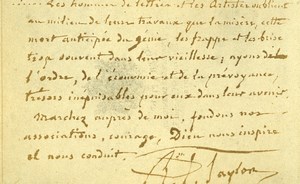 .... Les hommes de lettres et les Artistes oublient
au milieu de leurs travaux que la misère, cette
mort anticipée du génie, les frappe et les brise
trop souvent dans leur vieillesse; ayons de
l'ordre, de l'économie et de la prévoyance,
trésors inépuisables pour eux dans leur avenir.
Marchez auprès de moi, fondons nos
associations, courage, Dieu nous inspire
et nous conduit.
Taylor